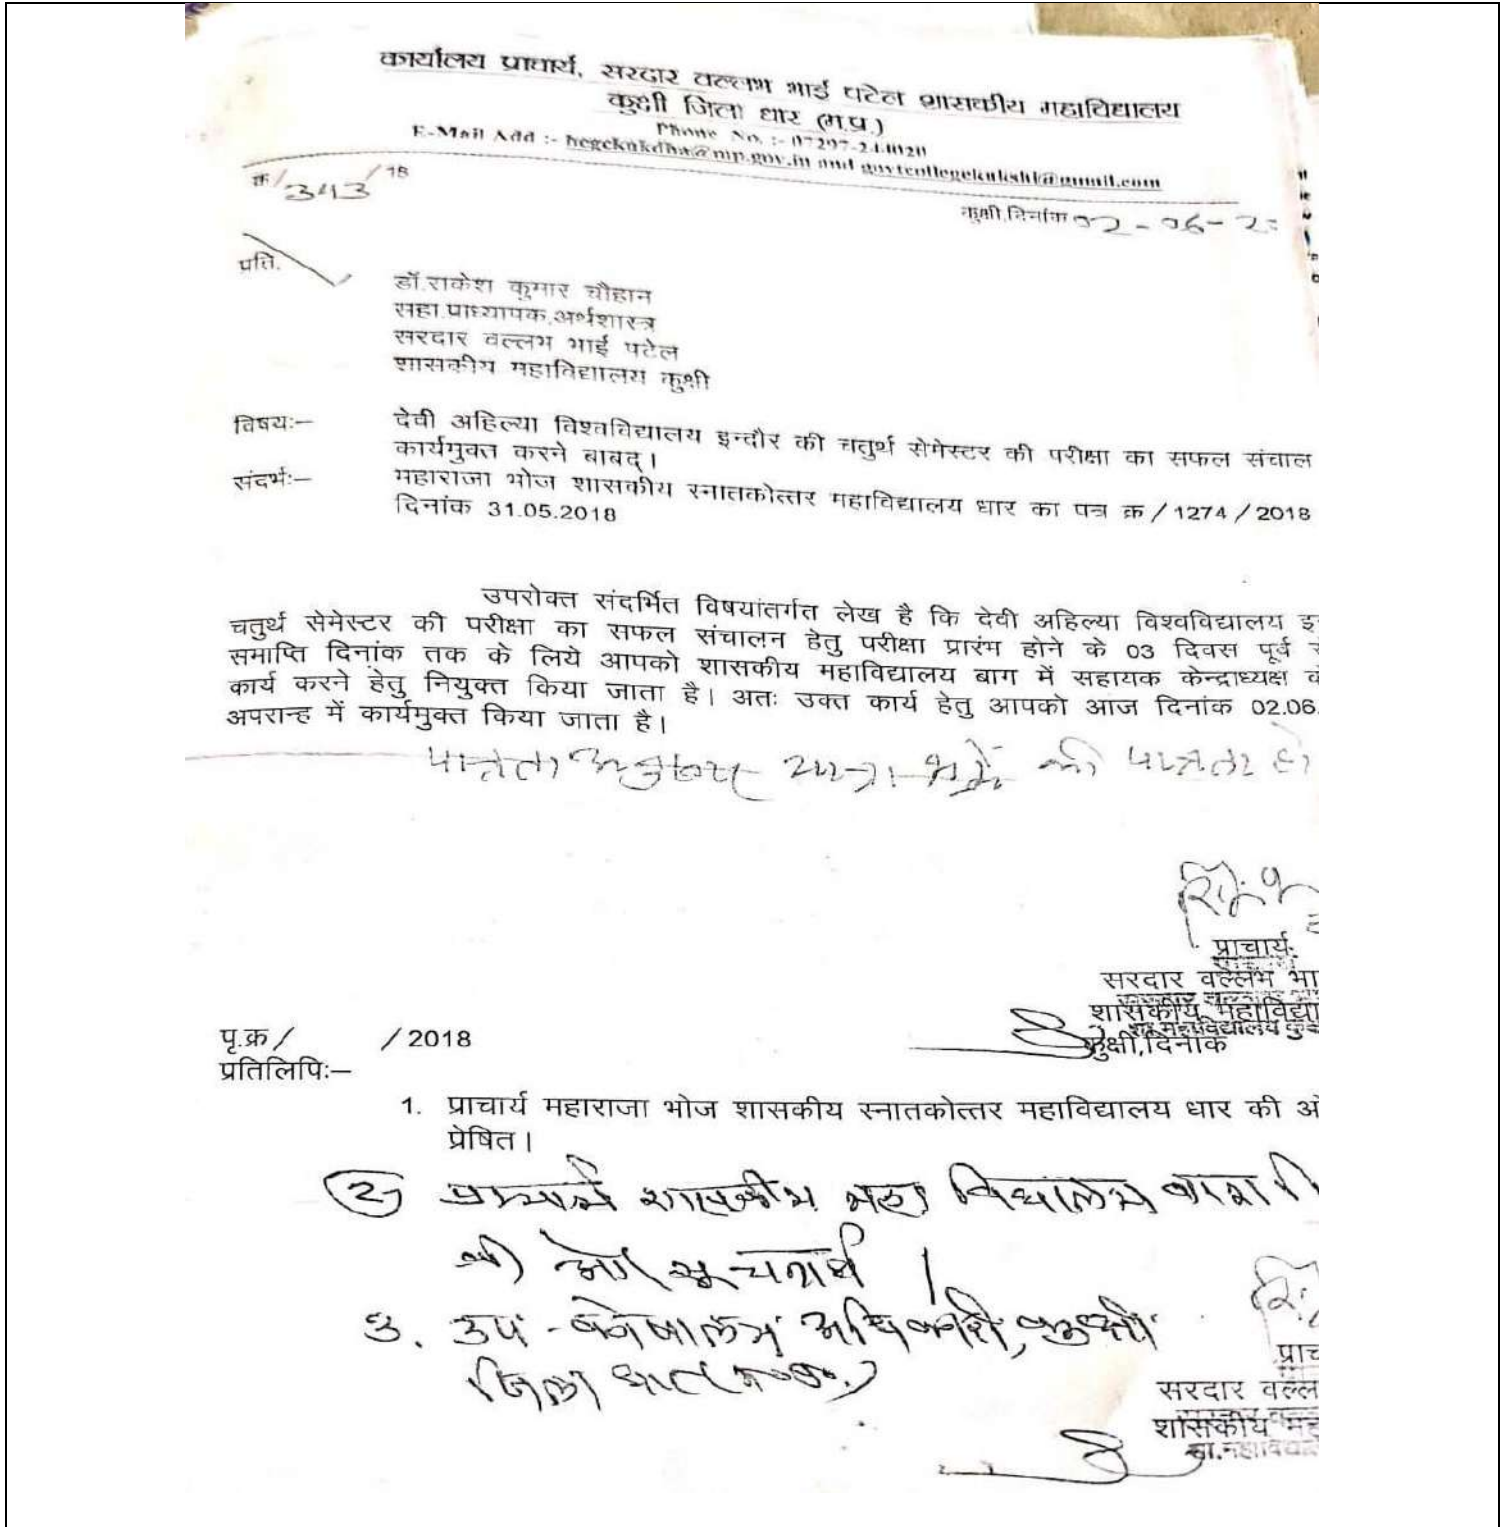 कार्यालय प्राचार्य, सरदार वल्लभ भाई पटेल शासकीय महाविद्यालय
कुक्षी जिला धार (म.प्र.)
Phone No. :- 07297-244020
E-Mail Add :- hegckukdha@mp.gov.in and govtcollegekukshi@gmail.com
क्र/ 343 /18
कुक्षी,दिनांक 02-06-2
प्रति,
डॉ.राकेश कुमार चौहान
सहा.प्राध्यापक,अर्थशास्त्र
सरदार वल्लभ भाई पटेल
शासकीय महाविद्यालय कुक्षी
विषयः– देवी अहिल्या विश्वविद्यालय इन्दौर की चतुर्थ सेमेस्टर की परीक्षा का सफल संचाल
कार्यमुक्त करने बाबद्।
संदर्भः– महाराजा भोज शासकीय स्नातकोत्तर महाविद्यालय धार का पत्र क्र/1274/2018
दिनांक 31.05.2018
उपरोक्त संदर्भित विषयांतर्गत लेख है कि देवी अहिल्या विश्वविद्यालय इ
चतुर्थ सेमेस्टर की परीक्षा का सफल संचालन हेतु परीक्षा प्रारंभ होने के 03 दिवस पूर्व
समाप्ति दिनांक तक के लिये आपको शासकीय महाविद्यालय बाग में सहायक केन्द्राध्यक्ष
कार्य करने हेतु नियुक्त किया जाता है। अतः उक्त कार्य हेतु आपको आज दिनांक 02.06.
अपरान्ह में कार्यमुक्त किया जाता है।
पात्रता अनुरूप यात्रा भत्ते की पात्रता हो
प्राचार्य
सरदार वल्लभ भा
शासकीय महाविद्या
कुक्षी,दिनांक
पृ.क्र/ /2018
प्रतिलिपिः–
1. प्राचार्य महाराजा भोज शासकीय स्नातकोत्तर महाविद्यालय धार की ओ
प्रेषित।
2, प्राचार्य शासकीय महाविद्यालय बाग
की ओर सूचनार्थ ।
3. उप-कोषालय अधिकारी, कुक्षी
जिला धार (म०प्र०)
प्राच
सरदार वल्ल
शासकीय मह
शा.महाविद्याल